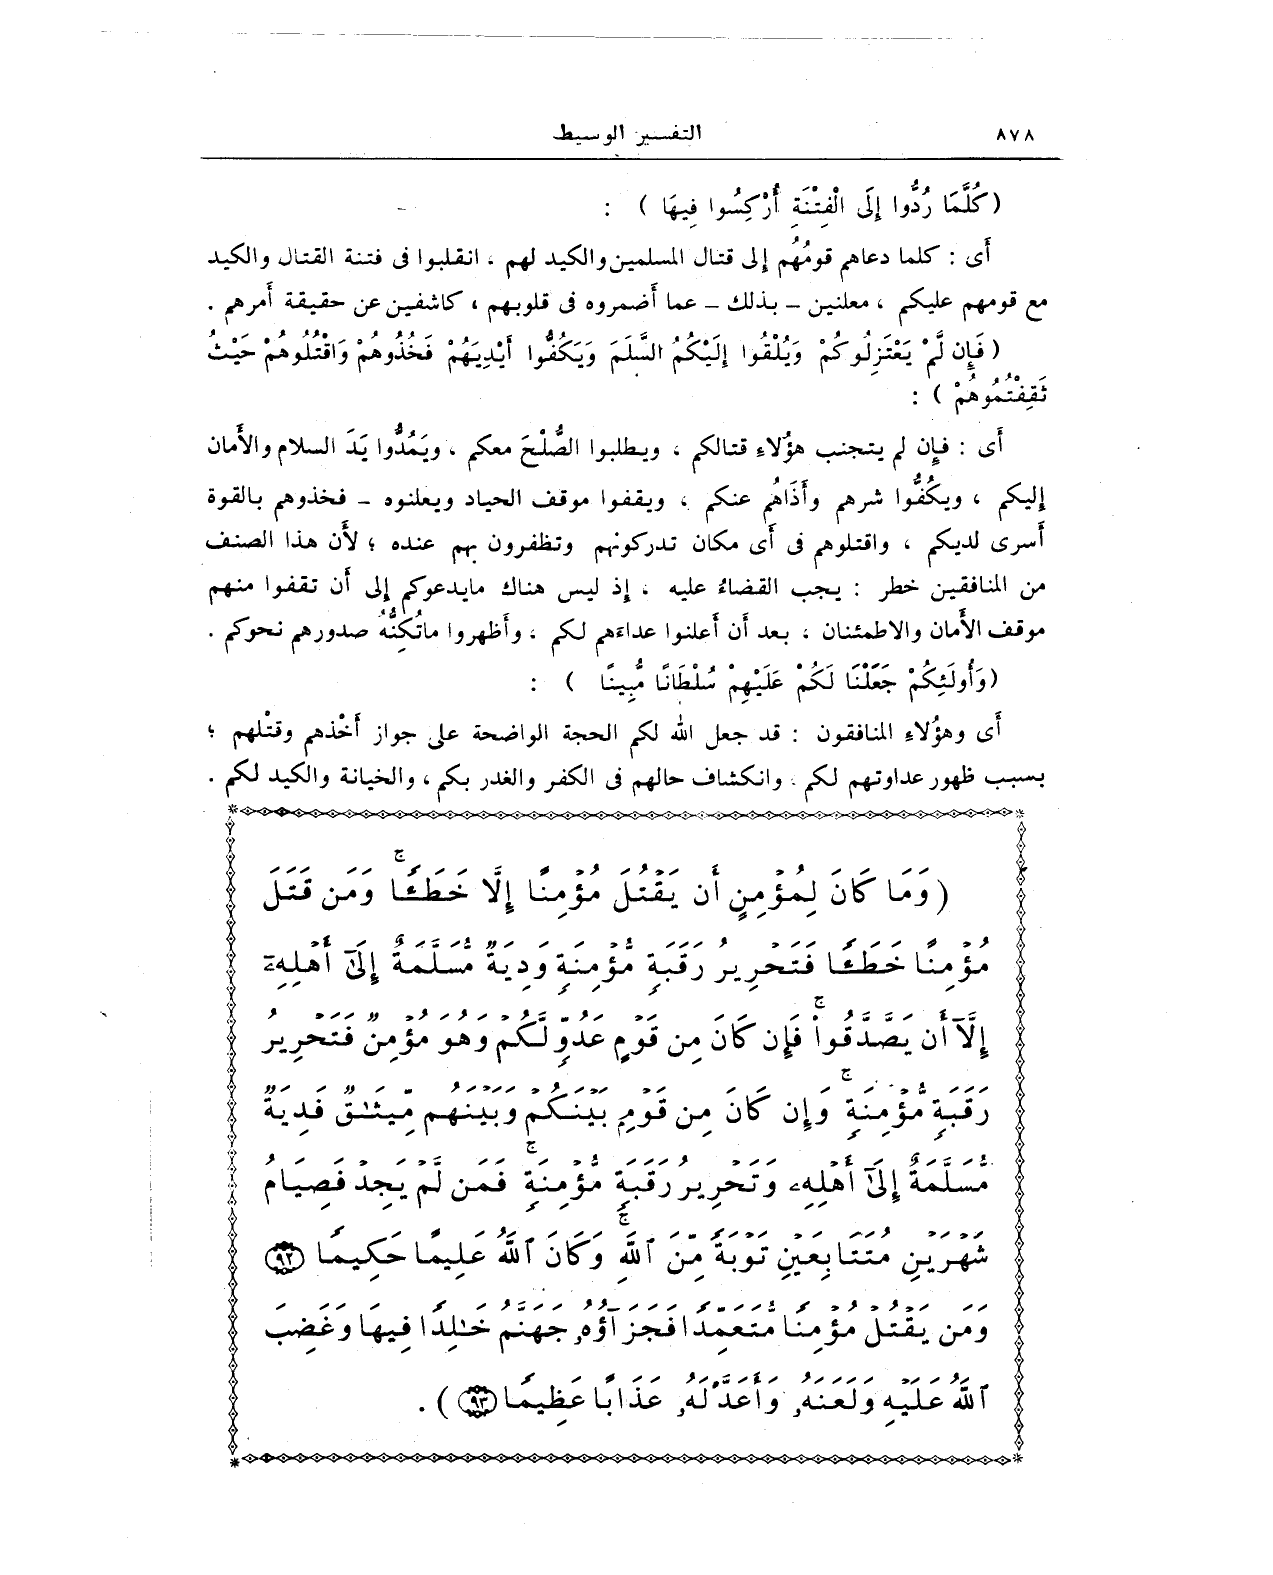 ٨٧٨ التفسير الوسيط
(كُلَّمَا رُدُّوا إِلَى الْفِتْنَةِ أُرْكِسُوا فِيهَا ) :
أَى : كلما دعاهم قومُهُم إلى قتال المسلمين والكيد لهم ، انقلبوا فى فتنة القتال والكيد
مع قومهم عليكم ، معلنين – بذلك – عما أَضمروه فى قلوبهم ، كاشفين عن حقيقة أَمرهم .
( فَإِن لَّمْ يَعْتَزِلُوكُمْ وَيُلْقُوا إِلَيْكُمُ السَّلَمَ وَيَكُفُّوا أَيْدِيَهُمْ فَخُذُوهُمْ وَاقْتُلُوهُمْ حَيْثُ
ثَقِفْتُمُوهُمْ ) :
أَى : فإِن لم يتجنب هؤُلاءِ قتالكم ، ويطلبوا الصُّلْحَ معكم ، ويَمُدُّوا يَدَ السلام والأَمان
إليكم ، ويكُفُّوا شرهم وأَذَاهُم عنكم ، ويقفوا موقف الحياد ويعلنوه – فخذوهم بالقوة
أَسرى لديكم ، واقتلوهم فى أَى مكان تدركونهم وتظفرون بهم عنده ؛ لأَن هذا الصنف
من المنافقين خطر : يجب القضاءُ عليه ، إذ ليس هناك مايدعوكم إلى أَن تقفوا منهم
موقف الأَمان والاطمئنان ، بعد أَن أَعلنوا عداءَهم لكم ، وأَظهروا ماتُكِنُّهُ صدورهم نحوكم .
(وَأُولَئِكُمْ جَعَلْنَا لَكُمْ عَلَيْهِمْ سُلْطَانًا مُّبِينًا ) :
أَى وهؤُلاءِ المنافقون : قد جعل الله لكم الحجة الواضحة على جواز أَخْذهم وقتْلهم ؛
بسبب ظهور عداوتهم لكم . وانكشاف حالهم فى الكفر والغدر بكم ، والخيانة والكيد لكم .
(وَمَا كَانَ لِمُؤْمِنٍ أَن يَقْتُلَ مُؤْمِنًا إِلَّا خَطَـًٔا ۚ وَمَن قَتَلَ
مُؤْمِنًا خَطَـًٔا فَتَحْرِيرُ رَقَبَةٍ مُّؤْمِنَةٍ وَدِيَةٌ مُّسَلَّمَةٌ إِلَىٰٓ أَهْلِهِۦٓ
إِلَّآ أَن يَصَّدَّقُوا۟ ۚ فَإِن كَانَ مِن قَوْمٍ عَدُوٍّ لَّكُمْ وَهُوَ مُؤْمِنٌ فَتَحْرِيرُ
رَقَبَةٍ مُّؤْمِنَةٍ ۚ وَإِن كَانَ مِن قَوْمٍۭ بَيْنَكُمْ وَبَيْنَهُم مِّيثَـٰقٌ فَدِيَةٌ
مُّسَلَّمَةٌ إِلَىٰٓ أَهْلِهِۦ وَتَحْرِيرُ رَقَبَةٍ مُّؤْمِنَةٍ ۚ فَمَن لَّمْ يَجِدْ فَصِيَامُ
شَهْرَيْنِ مُتَتَابِعَيْنِ تَوْبَةً مِّنَ ٱللَّهِ ۚ وَكَانَ ٱللَّهُ عَلِيمًا حَكِيمًا ٩٢
وَمَن يَقْتُلْ مُؤْمِنًا مُّتَعَمِّدًا فَجَزَآؤُهُۥ جَهَنَّمُ خَـٰلِدًا فِيهَا وَغَضِبَ
ٱللَّهُ عَلَيْهِ وَلَعَنَهُۥ وَأَعَدَّ لَهُۥ عَذَابًا عَظِيمًا ٩٣ ) .